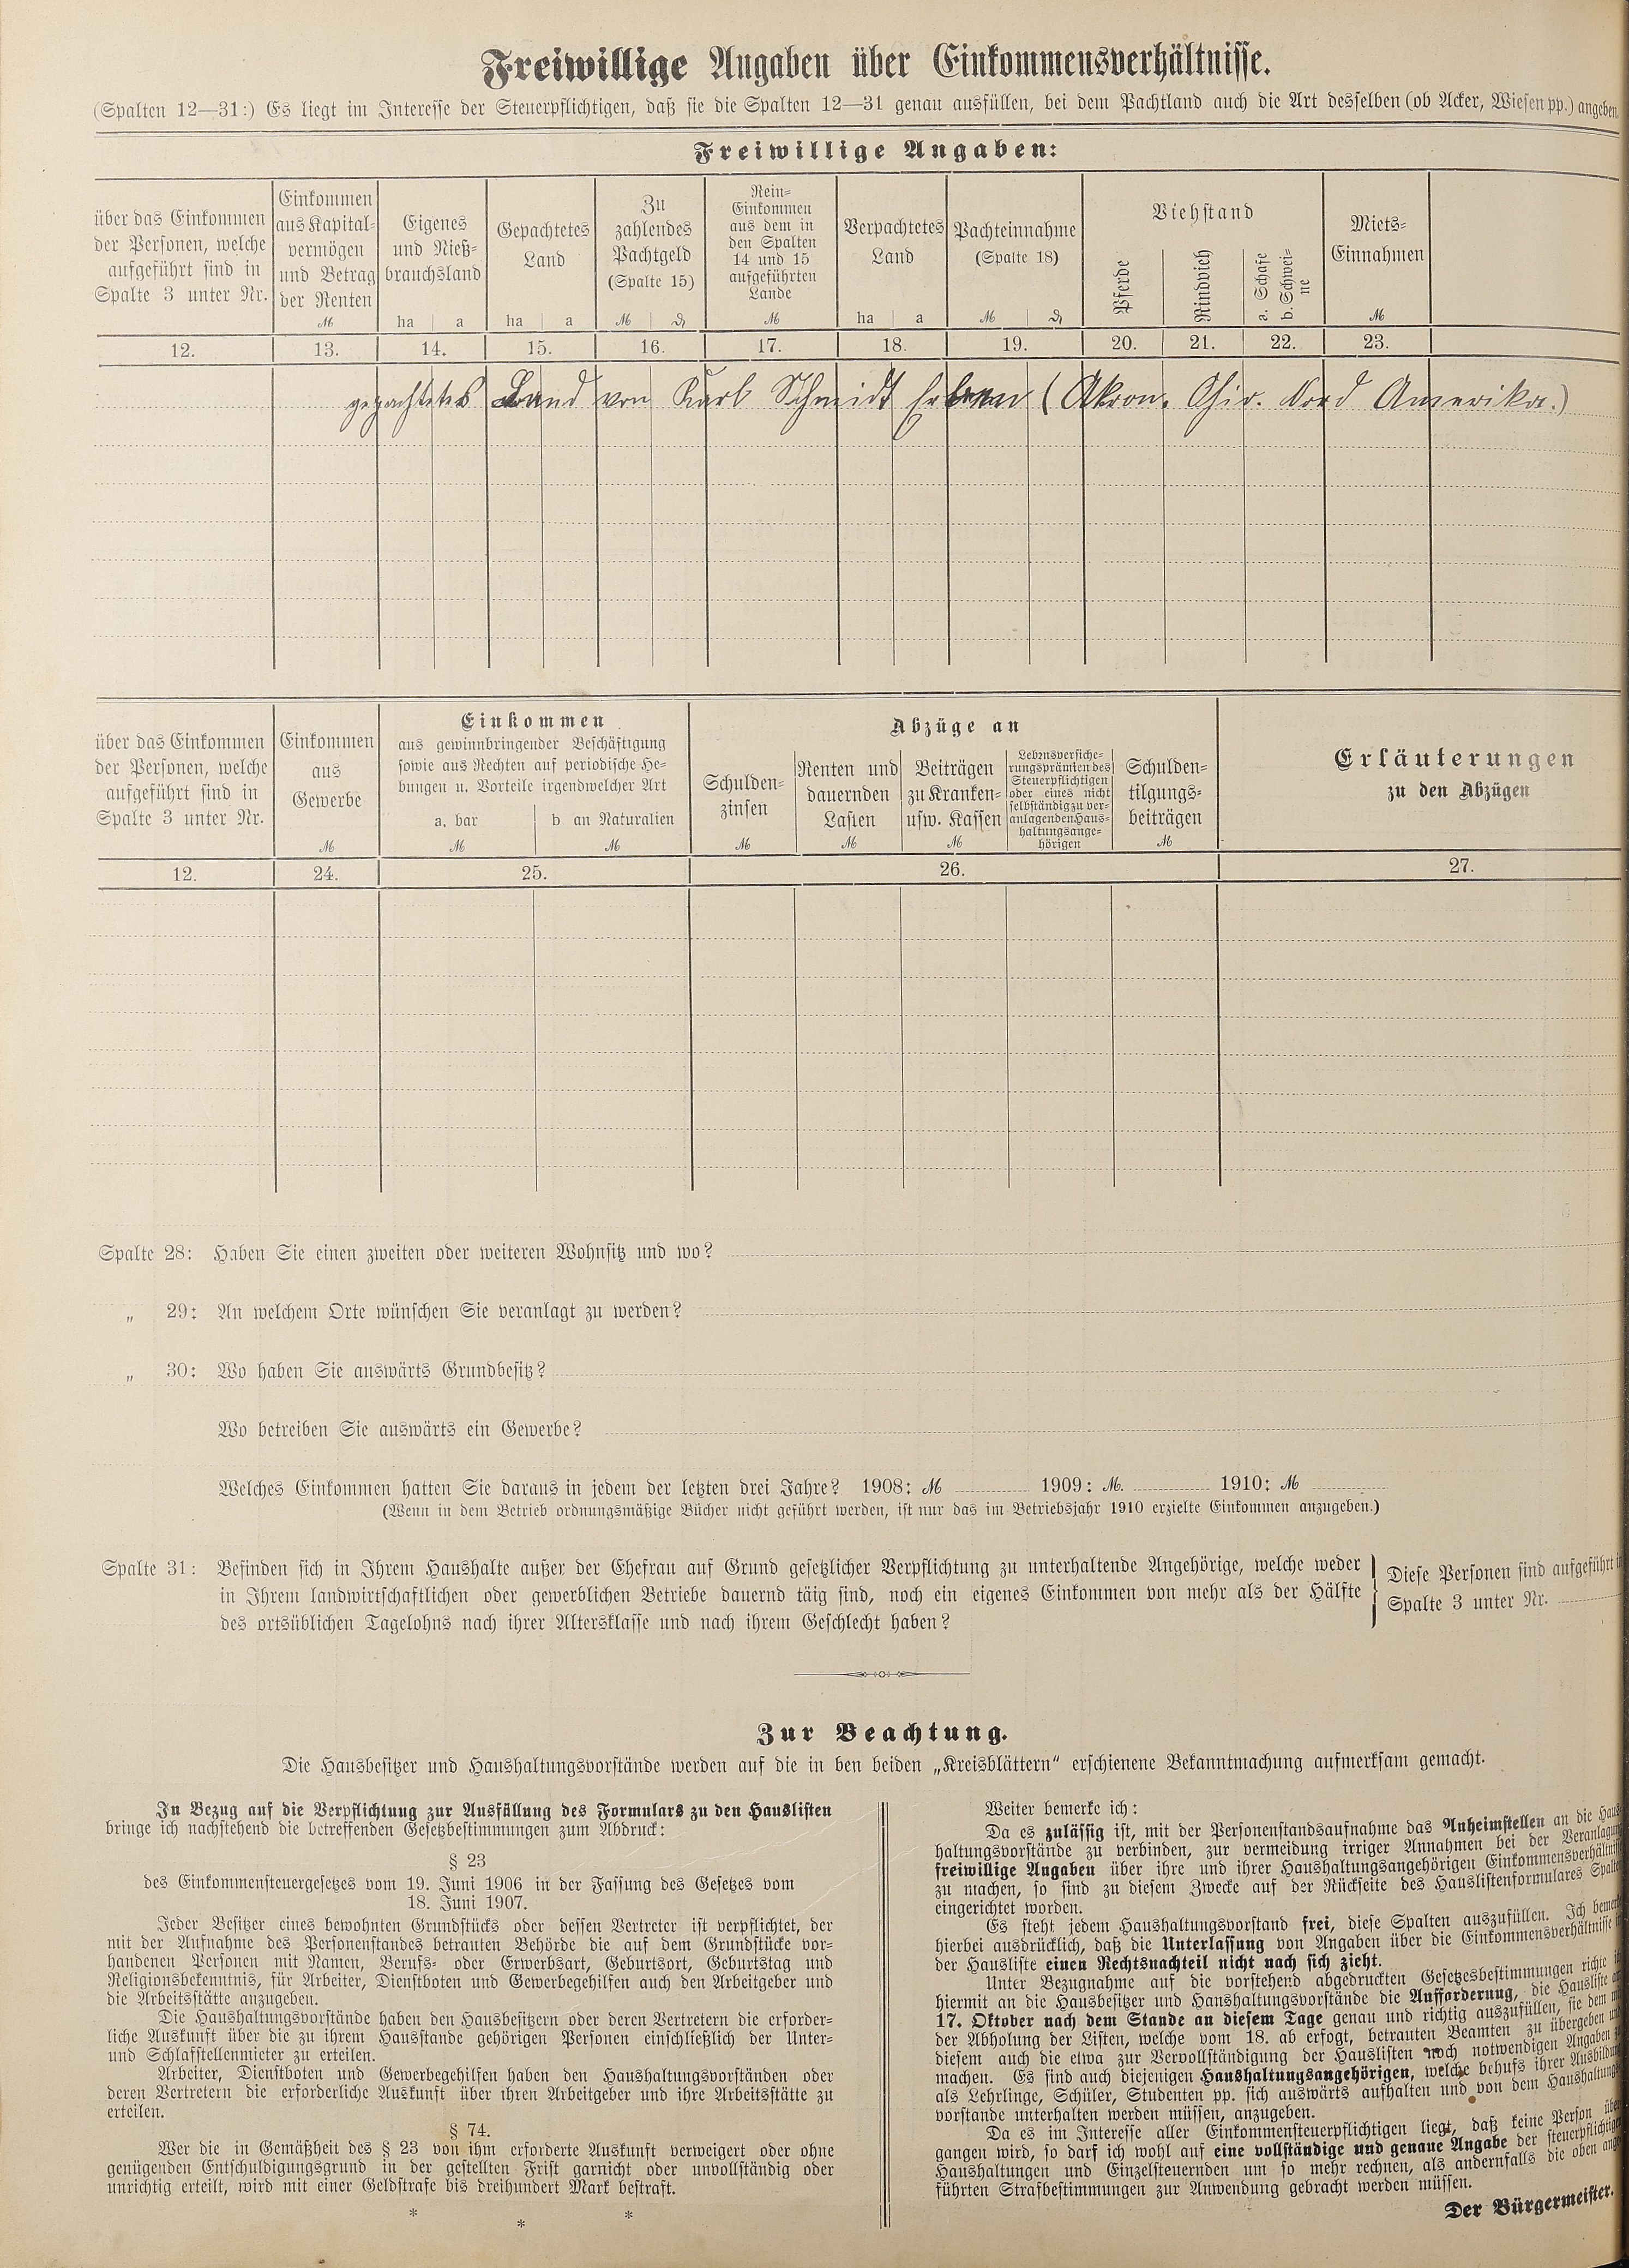 Freiwillige Angaben über Einkommensverhältnisse.
(Spalten 12—31:) Es liegt im Interesse der Steuerpflichtigen, daß sie die Spalten 12—31 genau ausfüllen, bei dem Pachtland auch die Art desselben (ob Acker, Wiesen pp.) angeben.
Freiwillige Angaben:
über das Einkommen
der Personen, welche
aufgeführt sind in
Spalte 3 unter Nr.
Einkommen
aus Kapital-
vermögen
und Betrag
der Renten
M
Eigenes
und Nieß-
brauchsland
ha a
Gepachtetes
Land
ha a
Zu
zahlendes
Pachtgeld
(Spalte 15)
M ₰
Rein-
Einkommen
aus dem in
den Spalten
14 und 15
aufgeführten
Lande
M
Verpachtetes
Land
ha a
Pachteinnahme
(Spalte 18)
M ₰
Viehstand
Pferde
Rindvieh
a. Schafe
b. Schwei-
ne
Miets-
Einnahmen
M
12. 13. 14. 15. 16. 17. 18. 19. 20. 21. 22. 23.
gepachtetes Land von Karl Schmidt Erben (Akron. Ohio. Nord Amerika.)
über das Einkommen
der Personen, welche
aufgeführt sind in
Spalte 3 unter Nr.
Einkommen
aus
Gewerbe
M
Einkommen
aus gewinnbringender Beschäftigung
sowie aus Rechten auf periodische He-
bungen u. Vorteile irgendwelcher Art
a. bar
M
b an Naturalien
M
Abzüge an
Schulden-
zinsen
M
Renten und
dauernden
Lasten
M
Beiträgen
zu Kranken-
usw. Kassen
M
Lebensversiche-
rungsprämien des
Steuerpflichtigen
oder eines nicht
selbständig zu ver-
anlagenden Haus-
haltungsange-
hörigen
Schulden-
tilgungs-
beiträgen
M
Erläuterungen
zu den Abzügen
12. 24. 25. 26. 27.
Spalte 28: Haben Sie einen zweiten oder weiteren Wohnsitz und wo?
„ 29: An welchem Orte wünschen Sie veranlagt zu werden?
„ 30: Wo haben Sie auswärts Grundbesitz?
Wo betreiben Sie auswärts ein Gewerbe?
Welches Einkommen hatten Sie daraus in jedem der letzten drei Jahre? 1908: M 1909: M. 1910: M
(Wenn in dem Betrieb ordnungsmäßige Bücher nicht geführt werden, ist nur das im Betriebsjahr 1910 erzielte Einkommen anzugeben.)
Spalte 31: Befinden sich in Ihrem Haushalte außer der Ehefrau auf Grund gesetzlicher Verpflichtung zu unterhaltende Angehörige, welche weder
in Ihrem landwirtschaftlichen oder gewerblichen Betriebe dauernd täig sind, noch ein eigenes Einkommen von mehr als der Hälfte
des ortsüblichen Tagelohns nach ihrer Altersklasse und nach ihrem Geschlecht haben?
Diese Personen sind aufgeführt in
Spalte 3 unter Nr.
Zur Beachtung.
Die Hausbesitzer und Haushaltungsvorstände werden auf die in ben beiden „Kreisblättern“ erschienene Bekanntmachung aufmerksam gemacht.
In Bezug auf die Verpflichtung zur Ausfüllung des Formulars zu den Hauslisten
bringe ich nachstehend die betreffenden Gesetzbestimmungen zum Abdruck:
§ 23
des Einkommensteuergesetzes vom 19. Juni 1906 in der Fassung des Gesetzes vom
18. Juni 1907.
Jeder Besitzer eines bewohnten Grundstücks oder dessen Vertreter ist verpflichtet, der
mit der Aufnahme des Personenstandes betrauten Behörde die auf dem Grundstücke vor-
handenen Personen mit Namen, Berufs- oder Erwerbsart, Geburtsort, Geburtstag und
Religionsbekenntnis, für Arbeiter, Dienstboten und Gewerbegehilfen auch den Arbeitgeber und
die Arbeitsstätte anzugeben.
Die Haushaltungsvorstände haben den Hausbesitzern oder deren Vertretern die erforder-
liche Auskunft über die zu ihrem Hausstande gehörigen Personen einschließlich der Unter-
und Schlafstellenmieter zu erteilen.
Arbeiter, Dienstboten und Gewerbegehilfen haben den Haushaltungsvorständen oder
deren Vertretern die erforderliche Auskunft über ihren Arbeitgeber und ihre Arbeitsstätte zu
erteilen.
§ 74.
Wer die in Gemäßheit des § 23 von ihm erforderte Auskunft verweigert oder ohne
genügenden Entschuldigungsgrund in der gestellten Frist garnicht oder unvollständig oder
unrichtig erteilt, wird mit einer Geldstrafe bis dreihundert Mark bestraft.
* * *
Weiter bemerke ich:
Da es zulässig ist, mit der Personenstandsaufnahme das Anheimstellen an die Haus-
haltungsvorstände zu verbinden, zur vermeidung irriger Annahmen bei der Veranlagung
freiwillige Angaben über ihre und ihrer Haushaltungsangehörigen Einkommensverhältnisse
zu machen, so sind zu diesem Zwecke auf der Rückseite des Hauslistenformulares Spalten
eingerichtet worden.
Es steht jedem Haushaltungsvorstand frei, diese Spalten auszufüllen. Ich bemerke
hierbei ausdrücklich, daß die Unterlassung von Angaben über die Einkommensverhältnisse in
der Hausliste einen Rechtsnachteil nicht nach sich zieht.
Unter Bezugnahme auf die vorstehend abgedruckten Gesetzesbestimmungen richte ich
hiermit an die Hausbesitzer und Haushaltungsvorstände die Aufforderung, die Hausliste am
17. Oktober nach dem Stande an diesem Tage genau und richtig auszufüllen, sie dem mit
der Abholung der Listen, welche vom 18. ab erfogt, betrauten Beamten zu übergeben und
diesem auch die etwa zur Vervollständigung der Hauslisten noch notwendigen Angaben zu
machen. Es sind auch diejenigen Haushaltungsangehörigen, welche behufs ihrer Ausbildung
als Lehrlinge, Schüler, Studenten pp. sich auswärts aufhalten und von dem Haushaltungs-
vorstande unterhalten werden müssen, anzugeben.
Da es im Interesse aller Einkommensteuerpflichtigen liegt, daß keine Person über-
gangen wird, so darf ich wohl auf eine vollständige und genaue Angabe der steuerpflichtigen
Haushaltungen und Einzelsteuernden um so mehr rechnen, als andernfalls die oben ange-
führten Strafbestimmungen zur Anwendung gebracht werden müssen.
Der Bürgermeister.